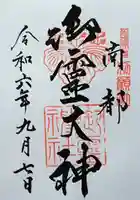 南都
御霊大神
令和六年九月七日